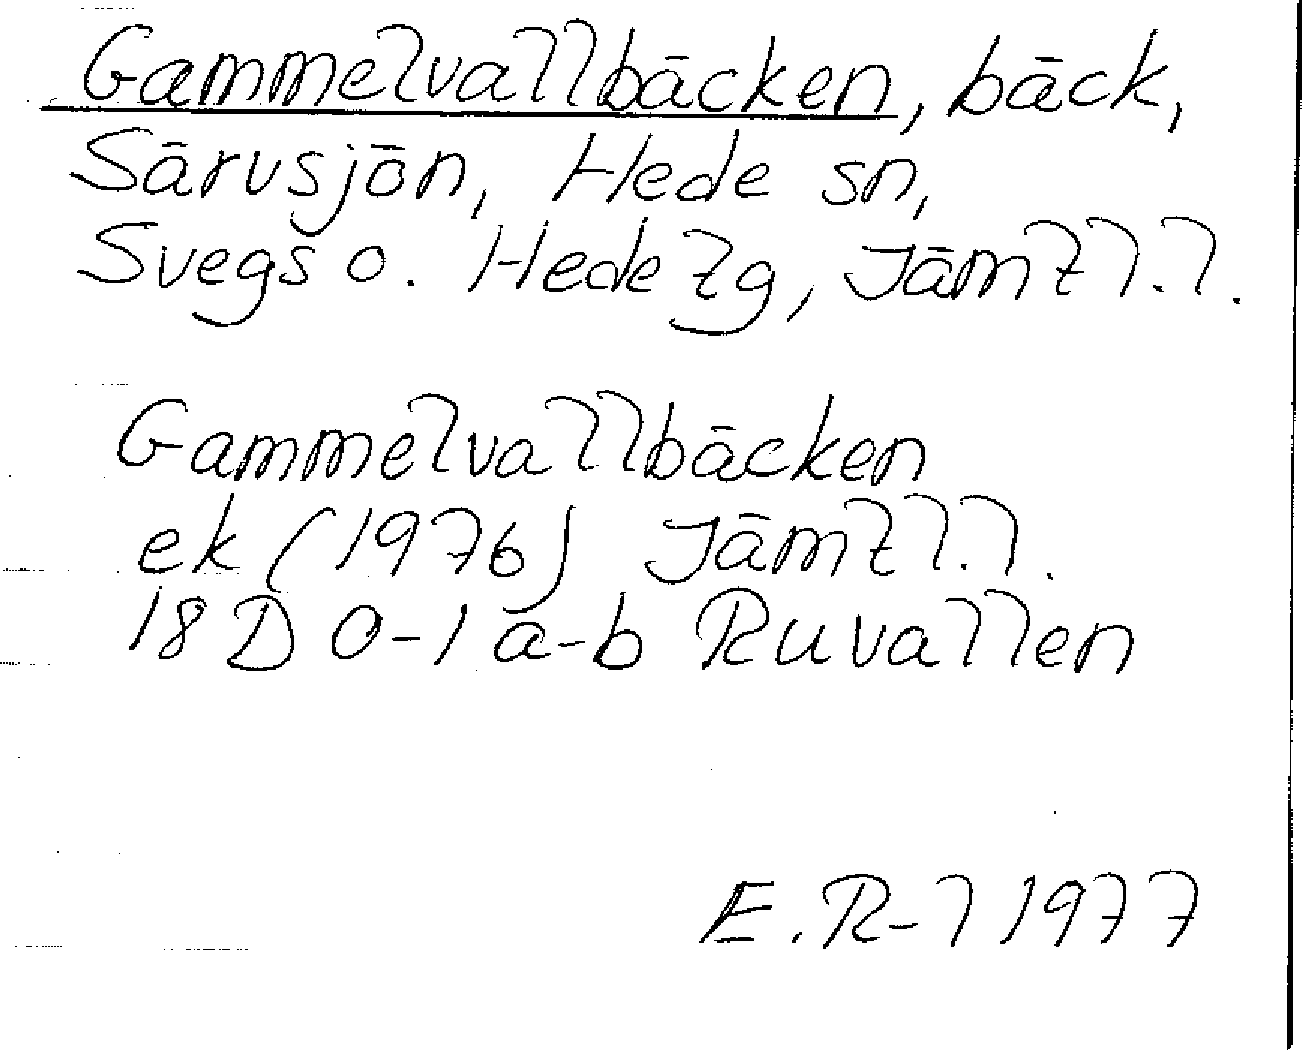 Gammelvallbäcken, bäck,
Särusjön, Hede sn,
Svegs o. Hede tg, Jämtl.l.
Gammelvallbäcken
ek (1976) Jämtl.l.
18 D 0-1 a-b Ruvallen
E.R-l 1977